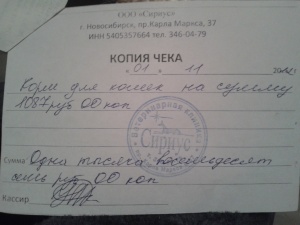 ООО «Сириус»
г. Новосибирск, пр.Карла Маркса, 37
ИНН 5405357664 тел. 346-04-79
КОПИЯ ЧЕКА
« 01 » 11
Корм для кошек на сумму
1087 руб 00 коп
Ветеринарная клиника
Сириус
Сумма Одна тысяча восемьдесят
семь руб 00 коп
Кассир